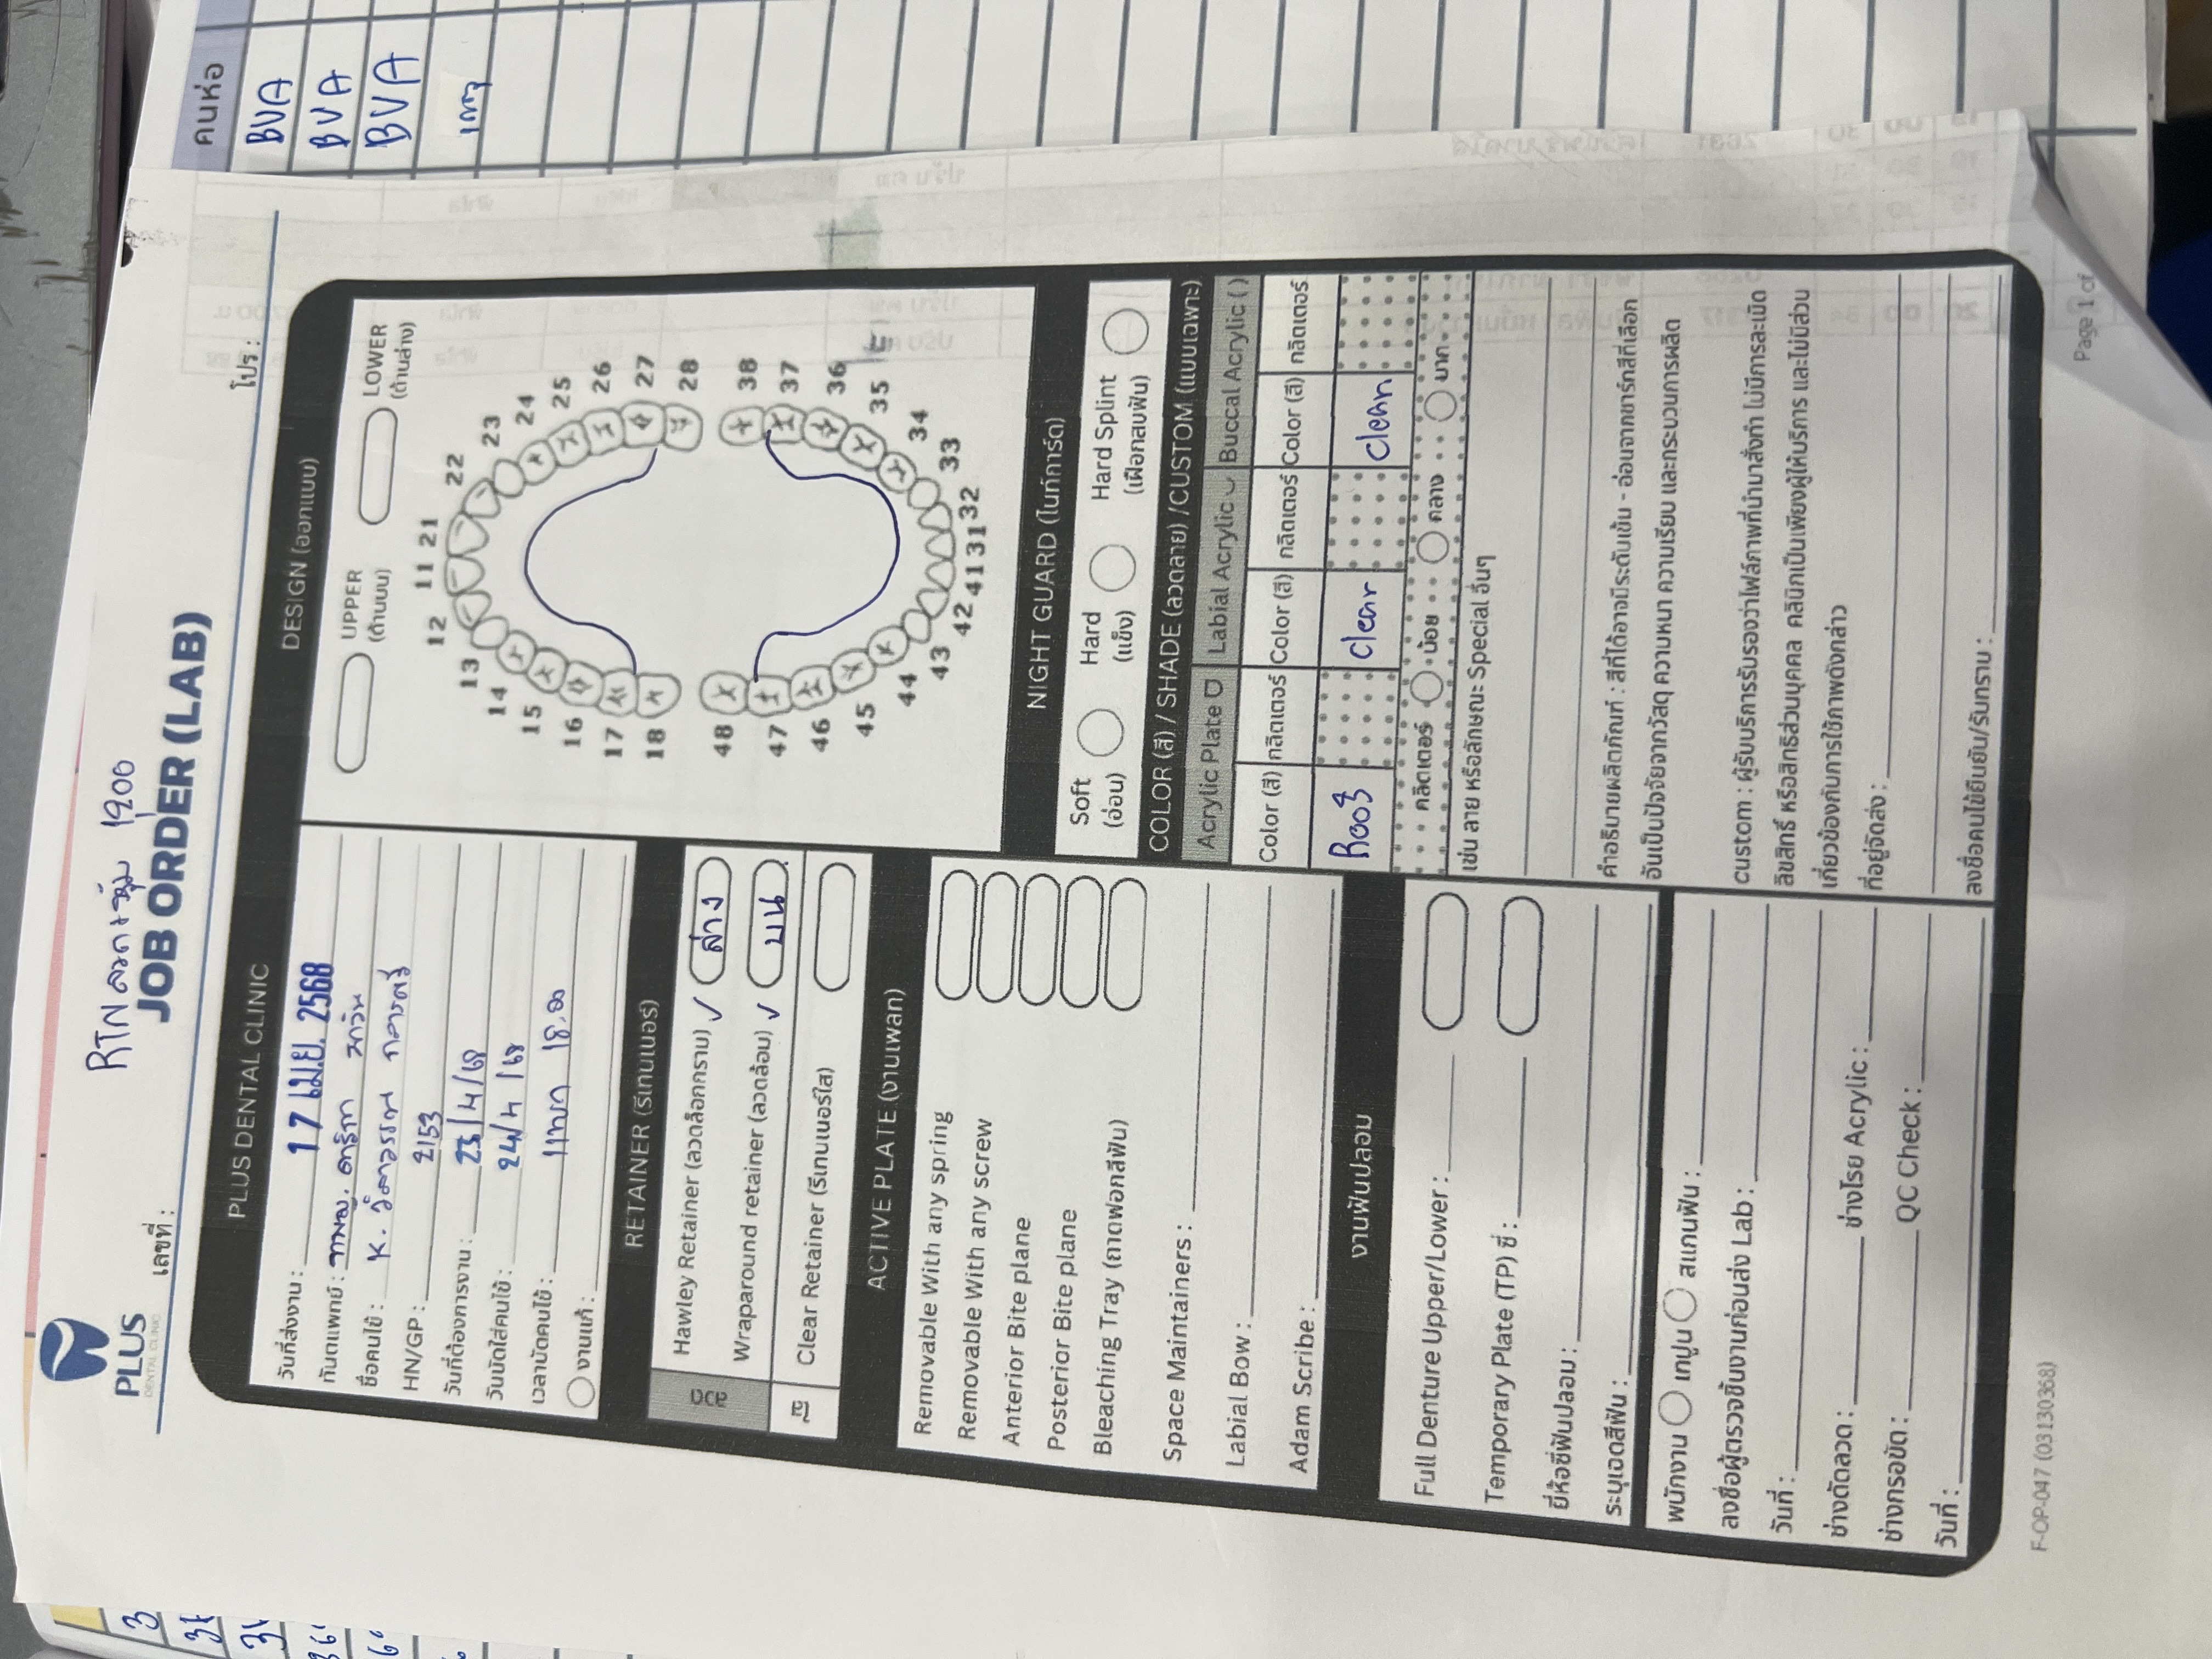 PLUS
DENTAL CLINIC
เลขที่ :
RTN ลวด+หุ้ม 1200
JOB ORDER (LAB)
โปร :
PLUS DENTAL CLINIC
วันที่ส่งงาน : 17 เม.ย. 2568
ทันตแพทย์ : ทพญ.
ชื่อคนไข้ : K.
HN/GP : 2153
วันที่ต้องการงาน : 23/4/68
วันนัดใส่คนไข้ : 24/4/68
เวลานัดคนไข้ : 18.00
งานแก้ :
RETAINER (รีเทนเนอร์)
ลวด
Hawley Retainer (ลวดล็อกกราม) ✓ ล่าง
Wraparound retainer (ลวดล้อม) ✓ บน
ใส
Clear Retainer (รีเทนเนอร์ใส)
ACTIVE PLATE (งานเพลท)
Removable With any spring
Removable With any screw
Anterior Bite plane
Posterior Bite plane
Bleaching Tray (ถาดฟอกสีฟัน)
Space Maintainers :
Labial Bow :
Adam Scribe :
งานฟันปลอม
Full Denture Upper/Lower :
Temporary Plate (TP) ซี่ :
ยี่ห้อซี่ฟันปลอม :
ระบุเฉดสีฟัน :
พนักงาน เทปูน สแกนฟัน :
ลงชื่อผู้ตรวจชิ้นงานก่อนส่ง Lab :
วันที่ :
ช่างดัดลวด : ช่างโรย Acrylic :
ช่างกรอขัด : QC Check :
วันที่ :
DESIGN (ออกแบบ)
UPPER (ด้านบน) LOWER (ด้านล่าง)
11 21
12 22
13 23
14 24
15 25
16 26
17 27
18 28
48 38
47 37
46 36
45 35
44 34
43 33
42 41 31 32
NIGHT GUARD (ไนท์การ์ด)
Soft (อ่อน) Hard (แข็ง) Hard Splint (เฝือกสบฟัน)
COLOR (สี) / SHADE (ลวดลาย) /CUSTOM (แบบเฉพาะ)
Acrylic Plate Labial Acrylic Buccal Acrylic ( )
Color (สี) กลิตเตอร์ Color (สี) กลิตเตอร์ Color (สี) กลิตเตอร์
clear clear
คลิตเตอร์ น้อย กลาง มาก
เช่น ลาย หรือลักษณะ Special อื่นๆ
คำอธิบายผลิตภัณฑ์ : สีที่ได้อาจมีระดับเข้ม - อ่อนจากชาร์กสีที่เลือก
อันเป็นปัจจัยจากวัสดุ ความหนา ความเรียบ และกระบวนการผลิต
custom : ผู้รับบริการรับรองว่าไฟล์ภาพที่นำมาสั่งทำ ไม่มีการละเมิด
ลิขสิทธิ์ หรือสิทธิส่วนบุคคล คลินิกเป็นเพียงผู้ให้บริการ และไม่มีส่วน
เกี่ยวข้องกับการใช้ภาพดังกล่าว
ที่อยู่จัดส่ง :
ลงชื่อคนไข้ยืนยัน/รับทราบ :
F-OP-047 (03130368)
Page 1 of
คนห่อ
BVA
BVA
BVA